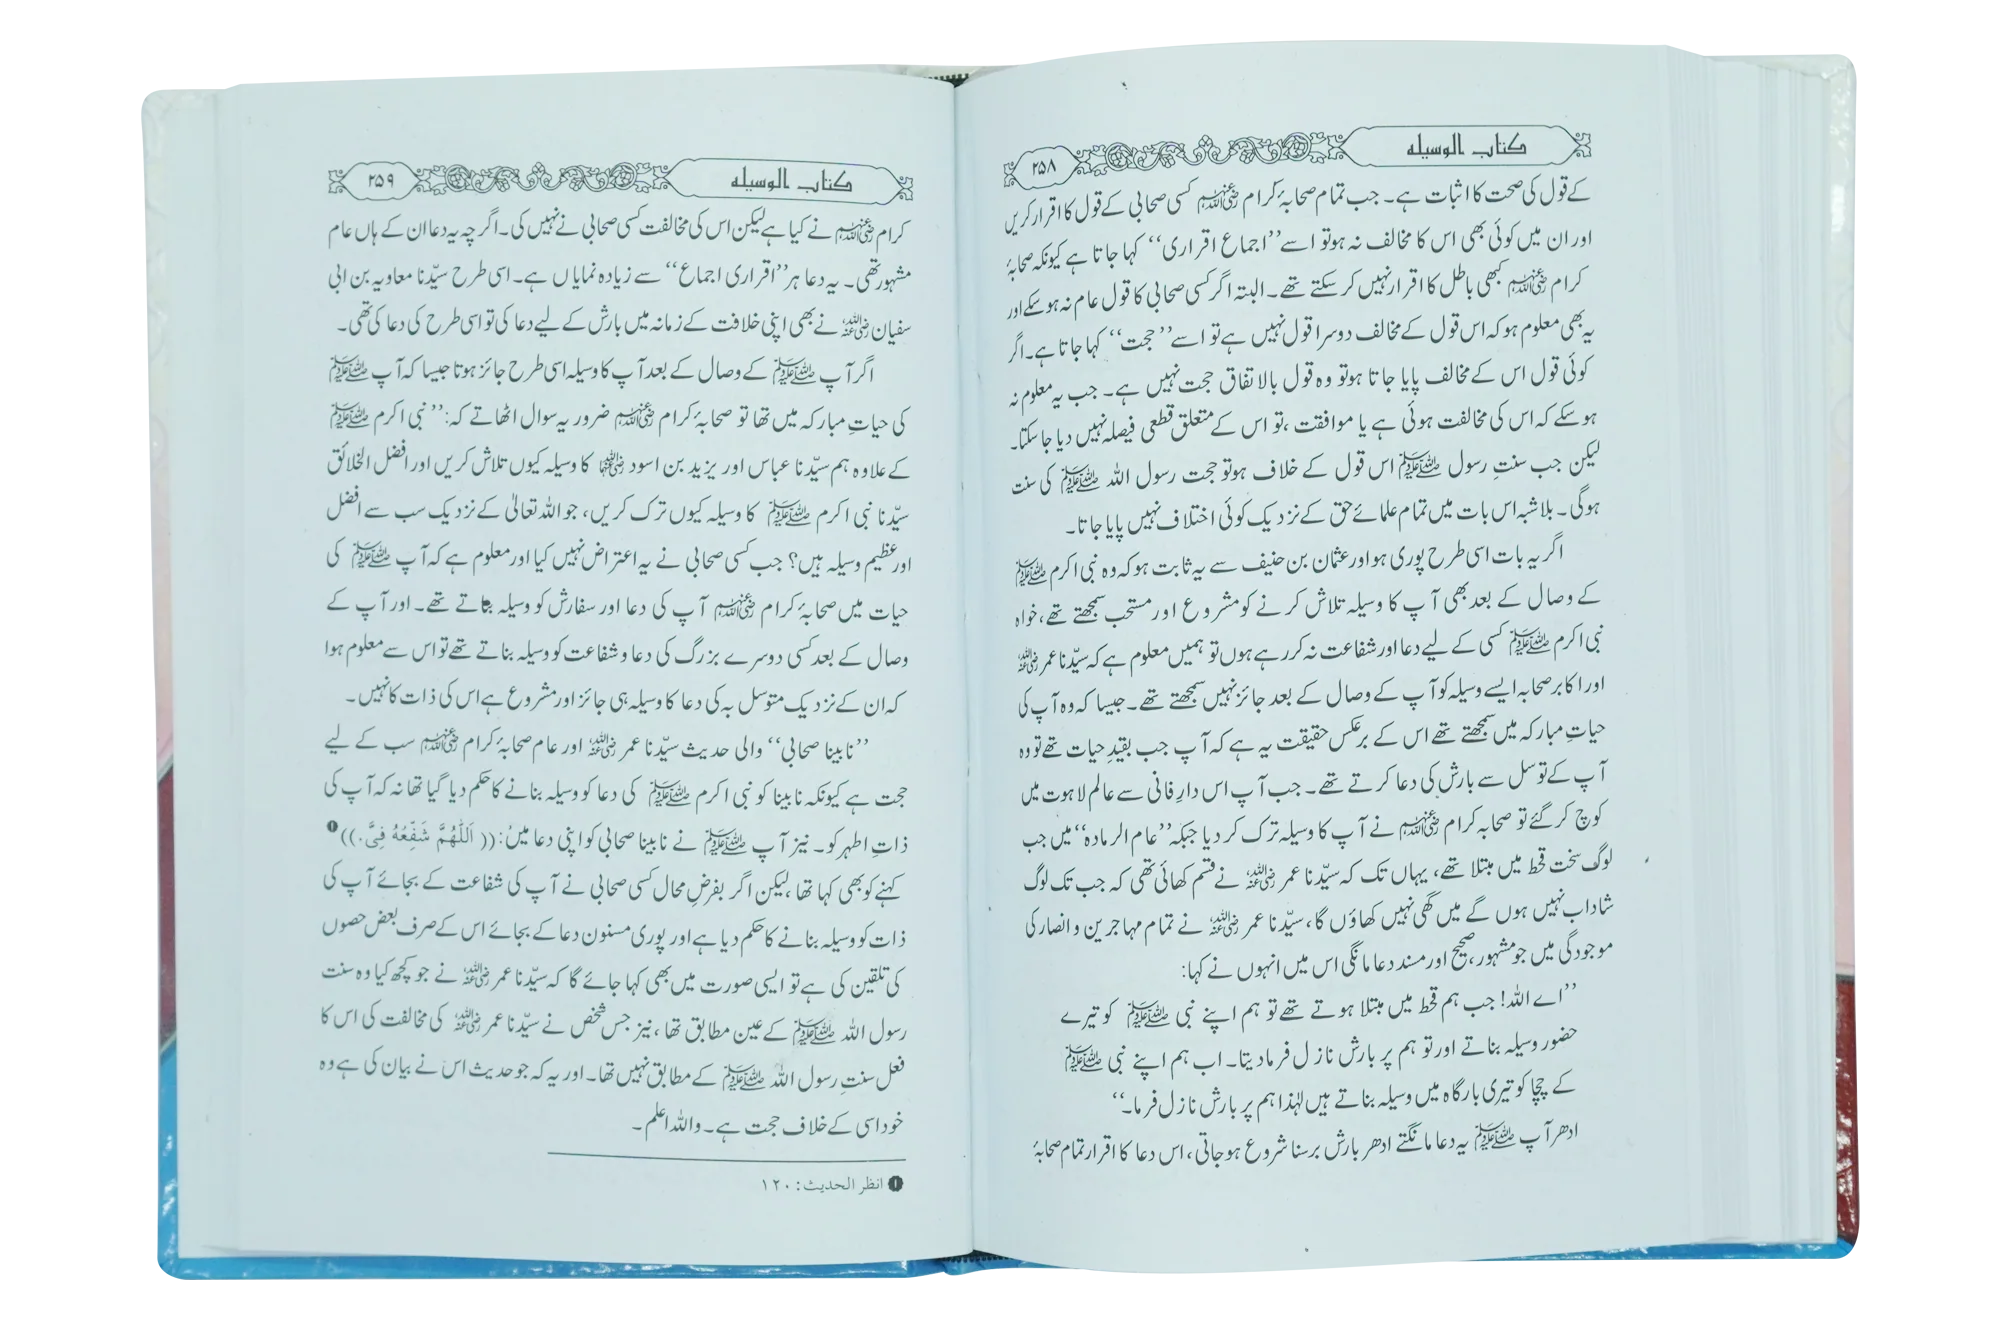 کتاب الوسیلہ
۲۵۸
کے قول کی صحت کا اثبات ہے۔ جب تمام صحابۂ کرام رضی اللہ عنہم کسی صحابی کے قول کا اقرار کریں
اور ان میں کوئی بھی اس کا مخالف نہ ہو تو اسے ’’اجماع اقراری‘‘ کہا جاتا ہے کیونکہ صحابۂ
کرام رضی اللہ عنہم کبھی باطل کا اقرار نہیں کر سکتے تھے۔ البتہ اگر کسی صحابی کا قول عام نہ ہو سکے اور
یہ بھی معلوم ہو کہ اس قول کے مخالف دوسرا قول نہیں ہے تو اسے ’’حجت‘‘ کہا جاتا ہے۔ اگر
کوئی قول اس کے مخالف پایا جاتا ہو تو وہ قول بالاتفاق حجت نہیں ہے۔ جب یہ معلوم نہ
ہو سکے کہ اس کی مخالفت ہوئی ہے یا موافقت، تو اس کے متعلق قطعی فیصلہ نہیں دیا جا سکتا۔
لیکن جب سنتِ رسول صلی اللہ علیہ وسلم اس قول کے خلاف ہو تو حجت رسول اللہ صلی اللہ علیہ وسلم کی سنت
ہوگی۔ بلاشبہ اس بات میں تمام علمائے حق کے نزدیک کوئی اختلاف نہیں پایا جاتا۔
اگر یہ بات اسی طرح پوری ہو اور عثمان بن حنیف سے یہ ثابت ہو کہ وہ نبی اکرم صلی اللہ علیہ وسلم
کے وصال کے بعد بھی آپ کا وسیلہ تلاش کرنے کو مشروع اور مستحب سمجھتے تھے، خواہ
نبی اکرم صلی اللہ علیہ وسلم کسی کے لیے دعا اور شفاعت نہ کر رہے ہوں تو ہمیں معلوم ہے کہ سیّدنا عمر رضی اللہ عنہ
اور اکابر صحابہ ایسے وسیلہ کو آپ کے وصال کے بعد جائز نہیں سمجھتے تھے۔ جیسا کہ وہ آپ کی
حیاتِ مبارکہ میں سمجھتے تھے اس کے برعکس حقیقت یہ ہے کہ آپ جب بقیدِ حیات تھے تو وہ
آپ کے توسل سے بارش کی دعا کرتے تھے۔ جب آپ اس دارِ فانی سے عالم لاہوت میں
کوچ کر گئے تو صحابہ کرام رضی اللہ عنہم نے آپ کا وسیلہ ترک کر دیا جبکہ ’’عام الرمادہ‘‘ میں جب
لوگ سخت قحط میں مبتلا تھے، یہاں تک کہ سیّدنا عمر رضی اللہ عنہ نے قسم کھائی تھی کہ جب تک لوگ
شاداب نہیں ہوں گے میں گھی نہیں کھاؤں گا، سیّدنا عمر رضی اللہ عنہ نے تمام مہاجرین و انصار کی
موجودگی میں جو مشہور، صحیح اور مسند دعا مانگی اس میں انہوں نے کہا:
’’اے اللہ! جب ہم قحط میں مبتلا ہوتے تھے تو ہم اپنے نبی صلی اللہ علیہ وسلم کو تیرے
حضور وسیلہ بناتے اور تو ہم پر بارش نازل فرما دیتا۔ اب ہم اپنے نبی صلی اللہ علیہ وسلم
کے چچا کو تیری بارگاہ میں وسیلہ بناتے ہیں لہٰذا ہم پر بارش نازل فرما۔‘‘
ادھر آپ صلی اللہ علیہ وسلم یہ دعا مانگتے ادھر بارش برسنا شروع ہو جاتی، اس دعا کا اقرار تمام صحابۂ
کتاب الوسیلہ
۲۵۹
کرام رضی اللہ عنہم نے کیا ہے لیکن اس کی مخالفت کسی صحابی نے نہیں کی۔ اگرچہ یہ دعا ان کے ہاں عام
مشہور تھی۔ یہ دعا ہر ’’اقراری اجماع‘‘ سے زیادہ نمایاں ہے۔ اسی طرح سیّدنا معاویہ بن ابی
سفیان رضی اللہ عنہ نے بھی اپنی خلافت کے زمانہ میں بارش کے لیے دعا کی تو اسی طرح کی دعا کی تھی۔
اگر آپ صلی اللہ علیہ وسلم کے وصال کے بعد آپ کا وسیلہ اسی طرح جائز ہوتا جیسا کہ آپ صلی اللہ علیہ وسلم
کی حیاتِ مبارکہ میں تھا تو صحابۂ کرام رضی اللہ عنہم ضرور یہ سوال اٹھاتے کہ: ’’نبی اکرم صلی اللہ علیہ وسلم
کے علاوہ ہم سیّدنا عباس اور یزید بن اسود رضی اللہ عنہما کا وسیلہ کیوں تلاش کریں اور افضل الخلائق
سیّدنا نبی اکرم صلی اللہ علیہ وسلم کا وسیلہ کیوں ترک کریں، جو اللہ تعالیٰ کے نزدیک سب سے افضل
اور عظیم وسیلہ ہیں؟ جب کسی صحابی نے یہ اعتراض نہیں کیا اور معلوم ہے کہ آپ صلی اللہ علیہ وسلم کی
حیات میں صحابۂ کرام رضی اللہ عنہم آپ کی دعا اور سفارش کو وسیلہ بناتے تھے۔ اور آپ کے
وصال کے بعد کسی دوسرے بزرگ کی دعا و شفاعت کو وسیلہ بناتے تھے تو اس سے معلوم ہوا
کہ ان کے نزدیک متوسل بہ کی دعا کا وسیلہ ہی جائز اور مشروع ہے اس کی ذات کا نہیں۔
’’نابینا صحابی‘‘ والی حدیث سیّدنا عمر رضی اللہ عنہ اور عام صحابۂ کرام رضی اللہ عنہم سب کے لیے
حجت ہے کیونکہ نابینا کو نبی اکرم صلی اللہ علیہ وسلم کی دعا کو وسیلہ بنانے کا حکم دیا گیا تھا نہ کہ آپ کی
ذاتِ اطہر کو۔ نیز آپ صلی اللہ علیہ وسلم نے نابینا صحابی کو اپنی دعا میں: (( اَللّٰهُمَّ شَفِّعْهُ فِیَّ . )) ❶
کہنے کو بھی کہا تھا، لیکن اگر بفرضِ محال کسی صحابی نے آپ کی شفاعت کے بجائے آپ کی
ذات کو وسیلہ بنانے کا حکم دیا ہے اور پوری مسنون دعا کے بجائے اس کے صرف بعض حصوں
کی تلقین کی ہے تو ایسی صورت میں بھی کہا جائے گا کہ سیّدنا عمر رضی اللہ عنہ نے جو کچھ کیا وہ سنت
رسول اللہ صلی اللہ علیہ وسلم کے عین مطابق تھا، نیز جس شخص نے سیّدنا عمر رضی اللہ عنہ کی مخالفت کی اس کا
فعل سنتِ رسول اللہ صلی اللہ علیہ وسلم کے مطابق نہیں تھا۔ اور یہ کہ جو حدیث اس نے بیان کی ہے وہ
خود اسی کے خلاف حجت ہے۔ واللہ اعلم۔
❶ انظر الحدیث: ۱۲۰